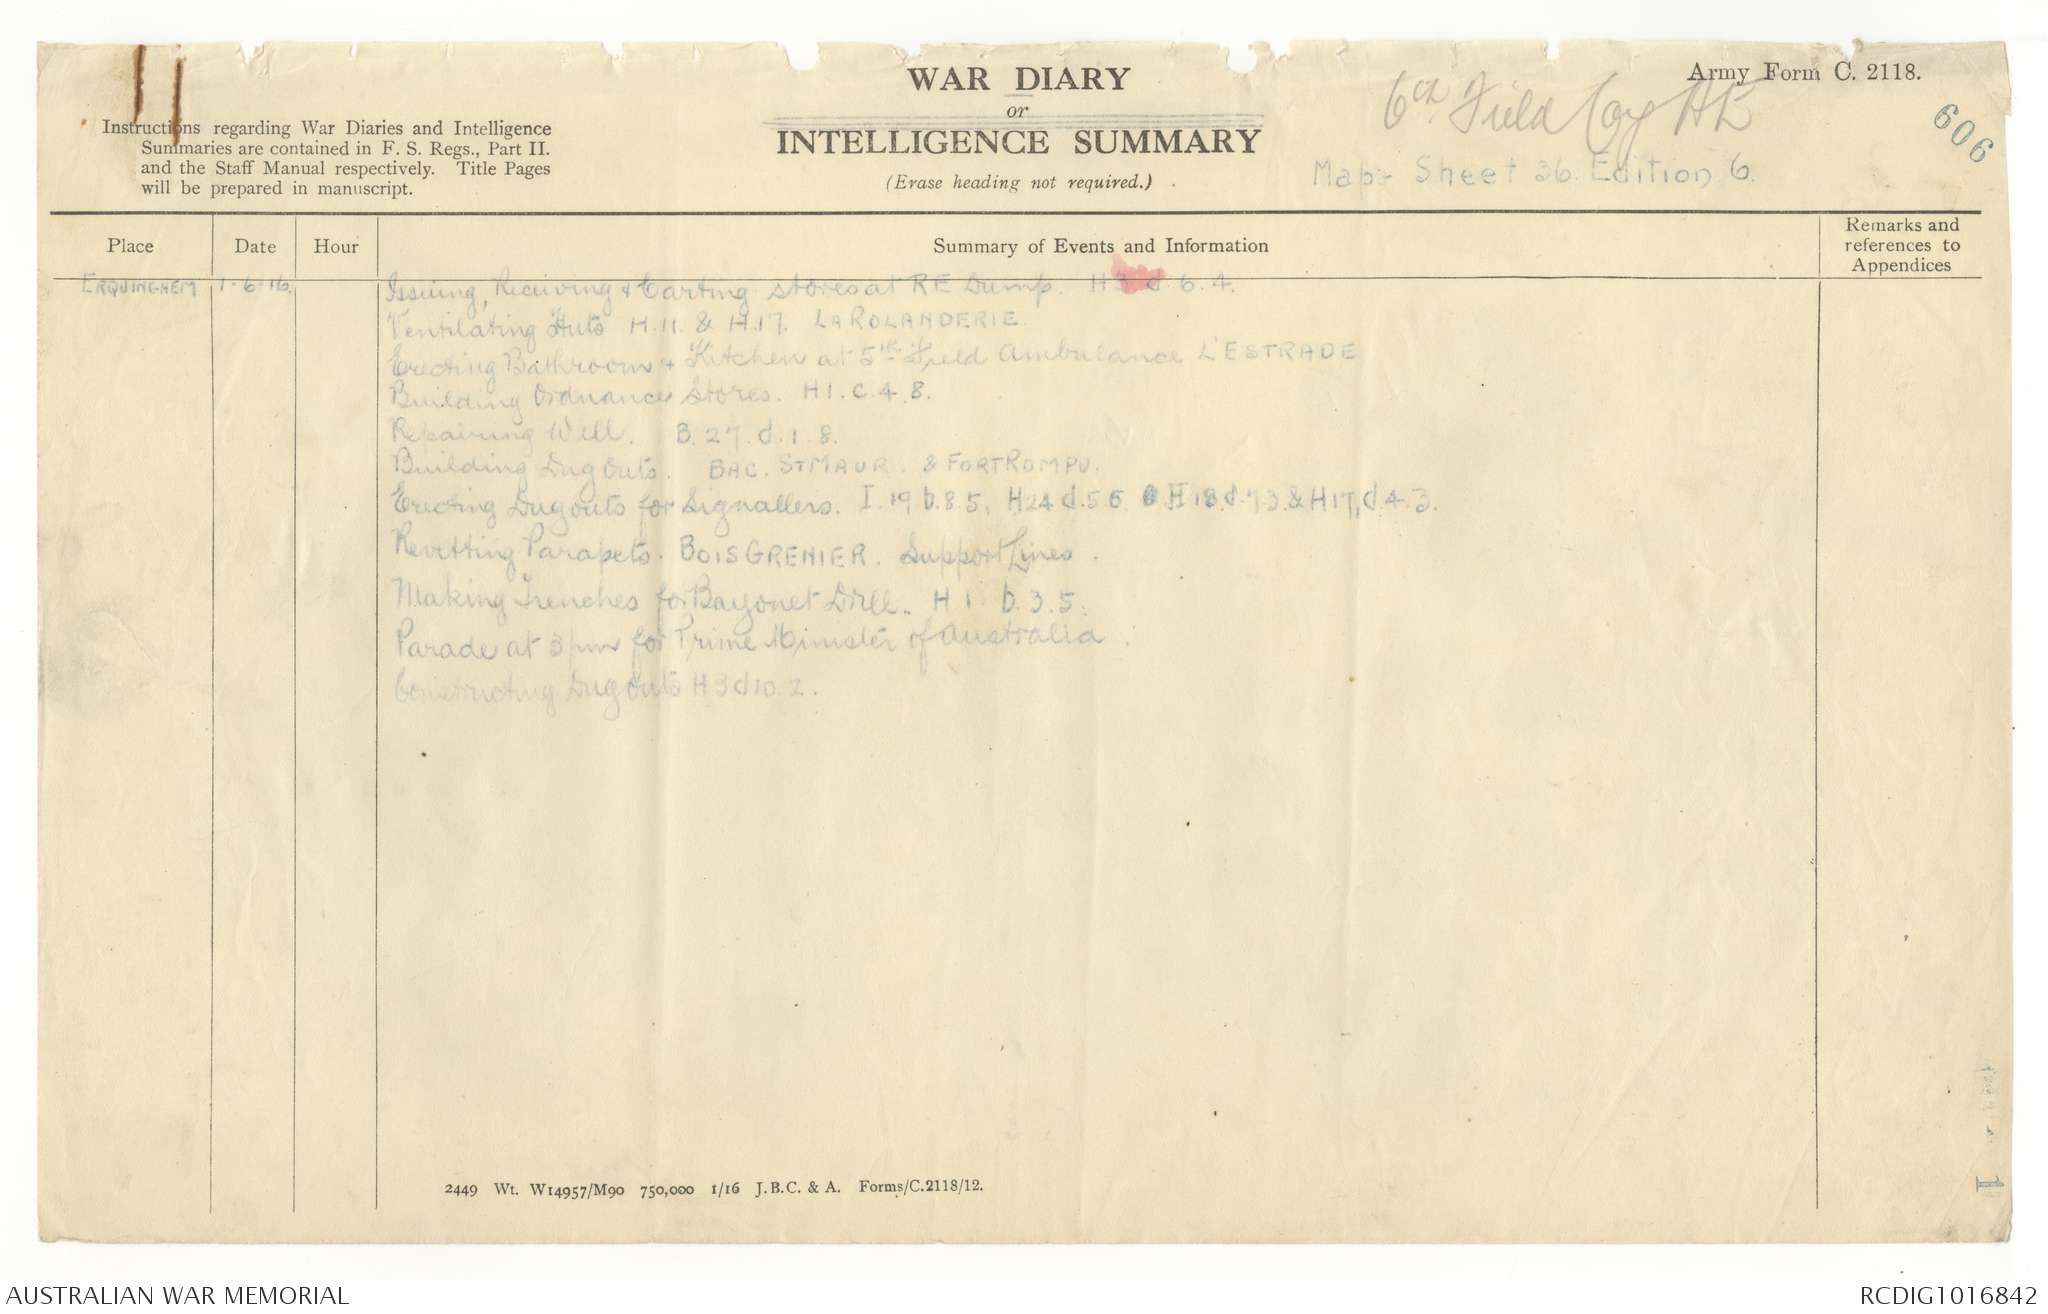 WAR DIARY
or
INTELLIGENCE SUMMARY
(Erase heading not required.)
Army Form C. 2118.
6th Field Coy AE
606
Map - Sheet 36. Edition 6.
Instructions regarding War Diaries and Intelligence
Summaries are contained in F. S. Regs., Part II.
and the Staff Manual respectively. Title Pages
will be prepared in manuscript.
Place Date Hour Summary of Events and Information Remarks and
references to
Appendices
ERQUINGHEM 1-6-16. Issuing, Receiving & Carting stores at RE Dump. H3 d. 6. 4.
Ventilating Huts H.11. & H.17. LA ROLANDERIE
Erecting Bathroom & Kitchen at 5th Field Ambulance L'ESTRADE
Building Ordnance Stores. H1. C. 4. 8.
Repairing Well. B. 27. d. 1. 8.
Building Dug Outs. BAC. ST MAUR. & FORT ROMPU.
Erecting Dugouts for Signallers. I. 19 b. 8 5, H24 d. 5 6. H 18. d. 7 3. & H17, d. 4. 3.
Revetting Parapets. BOIS GRENIER. Support Lines.
Making Trenches for Bayonet Drill.. H 1. b. 3. 5.
Parade at 3 pm for Prime Minister of Australia.
Constructing Dug Outs H 3 d 10. 2.
2449 Wt. W14957/M90 750,000 1/16 J.B.C. & A. Forms/C.2118/12.
1
AUSTRALIAN WAR MEMORIAL
RCDIG1016842